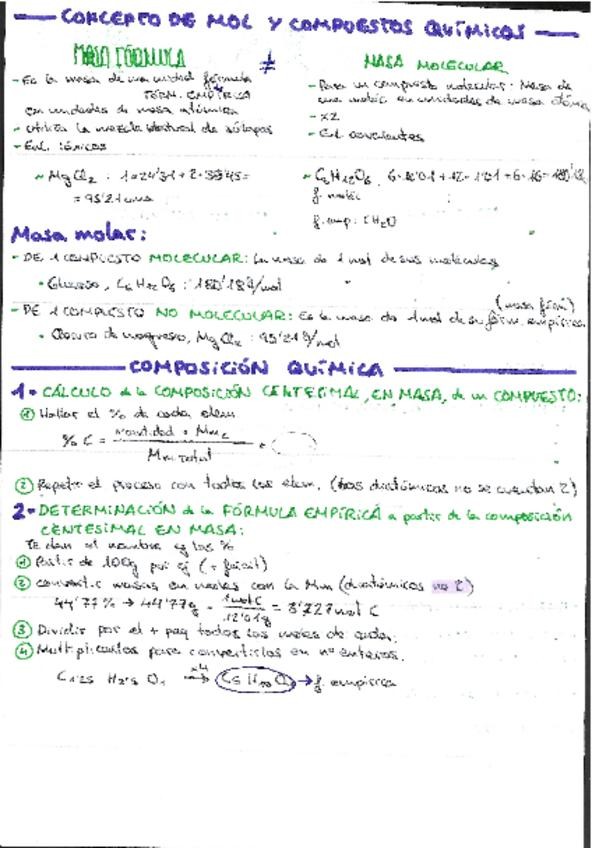 CONCEPTO DE MOL Y COMPUESTOS QUÍMICOS
MASA FÓRMULA ≠ MASA MOLECULAR
- Es la masa de una unidad fórmula
FÓRM. EMPÍRICA
en unidades de masa atómica
- Utiliza la mezcla natural de isótopos
- Enl. iónicos
- Para un compuesto molecular: Masa de
una moléc en unidades de masa atóm
- x2
- Enl. covalentes
~ MgCl2 : 1·24'31 + 2·35'45 =
= 95'21 uma
~ C6H12O6 6·12'01 + 12·1'01 + 6·16 = 180'18
f. moléc
f. emp: CH2O
Masa molar:
- DE 1 COMPUESTO MOLECULAR: la masa de 1 mol de sus moléculas
• Glucosa, C6H12O6 : 180'18g/mol
(masa fórm)
- DE 1 COMPUESTO NO MOLECULAR: Es la masa de 1 mol de su fórm. empírica
• Cloruro de magnesio, MgCl2 : 95'21g/mol
COMPOSICIÓN QUÍMICA
1- CÁLCULO de la COMPOSICIÓN CENTESIMAL, EN MASA, de un COMPUESTO:
① Hallar el % de cada elem
% C = cantidad · Mmc
Mm total
② Repetir el proceso con todos los elem. (los diatómicos no se cuentan 2)
2- DETERMINACIÓN de la FÓRMULA EMPÍRICA a partir de la composición
CENTESIMAL EN MASA:
Te dan el nombre y los %
① Partir de 100g por ej (+ fácil)
② convertir masas en moles con la Mm (diatómicos no 2)
44'77% → 44'77g · 1 mol C / 12'01g = 3'727 mol C
③ Dividir por el + peq todos los moles de cada.
④ Multiplicarlos para convertirlos en nº enteros.
C1'25 H2'5 O1 x4→ C5 H10 O4 → f. empírica